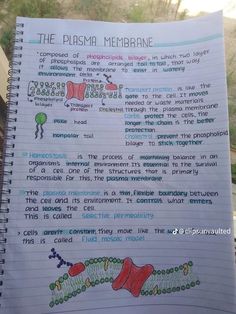 THE PLASMA MEMBRANE
• composed of phospholipids bilayer, in which two layer
of phospholipids are arranged tail to tail, that way
it allows the membrane to exist in watery
environment
Carbs
Transport proteins is like the
gate to the cell. It moves
needed or waste materials
through the plasma membrane
Phospholipid
bilayer
Transport
protein
Cholesterol
Carbs protect the cells, the
longer the chain is the better
protection
Polar head
Cholesterol prevent the phospholipid
bilayer to stick together
nonpolar tail
Homeostasis is the process of maintaining balance in an
organism's internal environment. It's essential to the survival
of a cell. One of the structures that is primarily
responsible for this, the plasma membrane.
The plasma membrane is a thin, flexible boundary between
the cell and its environment. It controls what enters
and leaves the cell.
This is called selective permeability
cells aren't constant, they move like the
this is called Fluid mosaic model
@clipsunvaulted